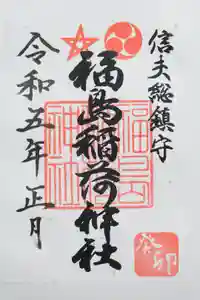 信夫総鎮守
福島稲荷神社
令和五年正月
福島稲荷神社
癸卯